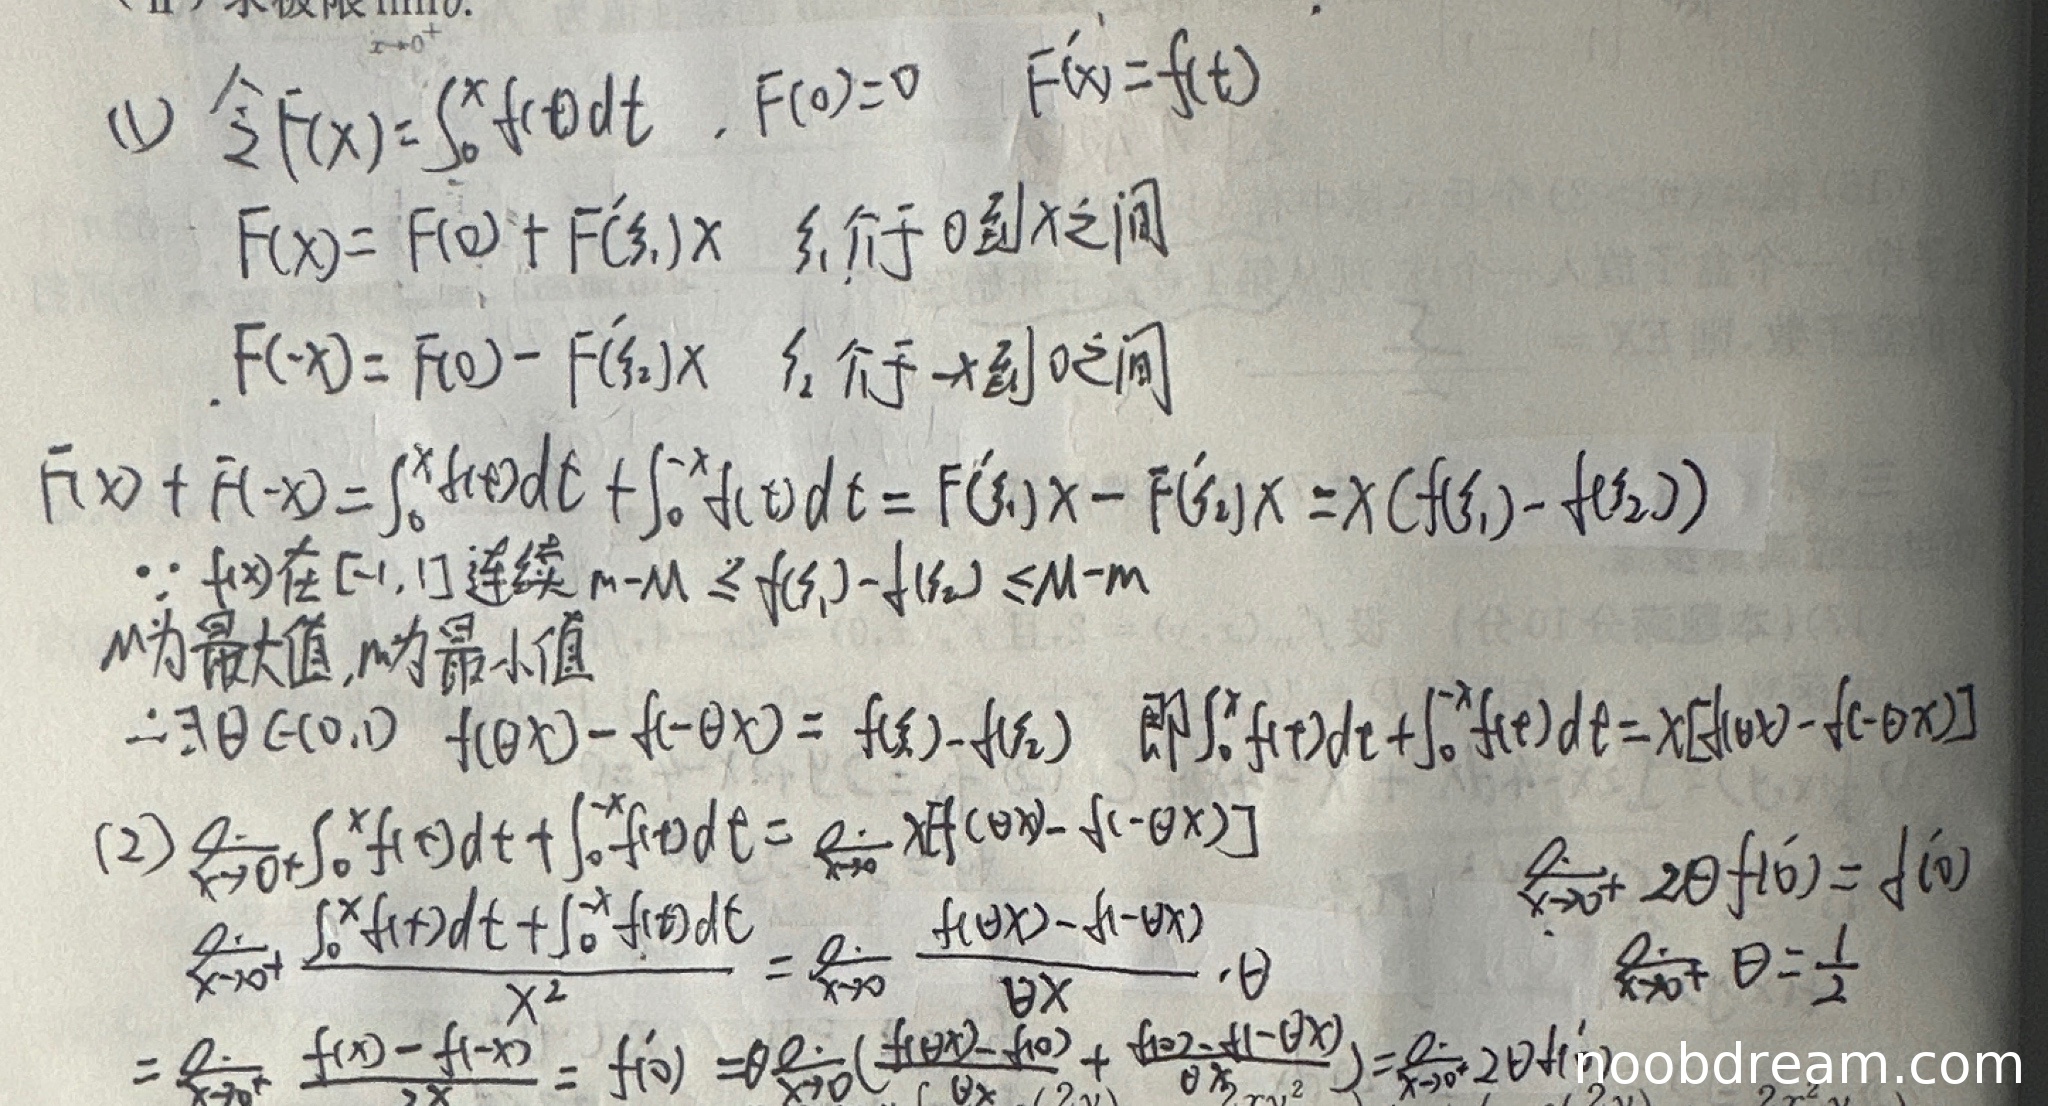 求极限limθ.
x→0⁺
(1) 令F(x)=∫₀ˣf(t)dt , F(0)=0 F'(x)=f(t)
F(x)=F(0)+F'(ξ₁)x ξ₁介于0到x之间
F(-x)=F(0)-F'(ξ₂)x ξ₂介于-x到0之间
F(x)+F(-x)=∫₀ˣf(t)dt+∫₀⁻ˣf(t)dt=F'(ξ₁)x-F'(ξ₂)x=x(f(ξ₁)-f(ξ₂))
∵ f(x)在[-1,1]连续 m-M≤f(ξ₁)-f(ξ₂)≤M-m
M为最大值,m为最小值
∴∃θ∈(0,1) f(θx)-f(-θx)=f(ξ₁)-f(ξ₂) 即∫₀ˣf(t)dt+∫₀⁻ˣf(t)dt=x[f(θx)-f(-θx)]
(2) lim x→0⁺ ∫₀ˣf(t)dt+∫₀⁻ˣf(t)dt= lim x→0 x[f(θx)-f(-θx)]
lim x→0⁺ (∫₀ˣf(t)dt+∫₀⁻ˣf(t)dt)/x² = lim x→0 (f(θx)-f(-θx))/θx ·θ
= lim x→0⁺ (f(x)-f(-x))/2x = f'(0) =θ lim x→0 ((f(θx)-f(0))/θx + (f(0)-f(-θx))/θx)= lim x→0⁺ 2θf'(0)
lim x→0⁺ 2θf'(0)=f'(0)
lim x→0⁺ θ=1/2
noobdream.com